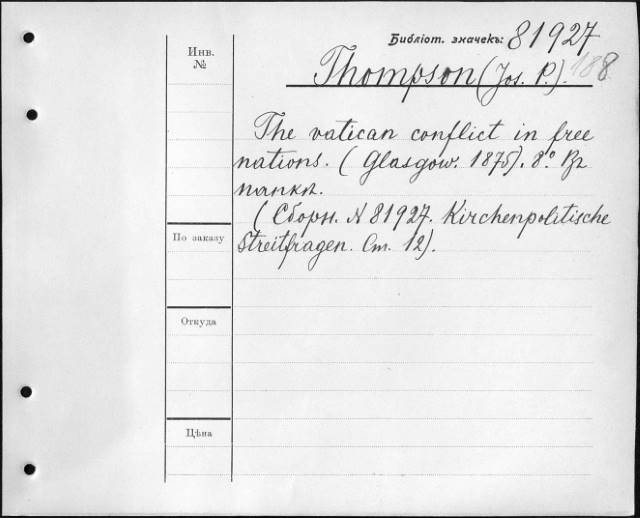 Библіот. значекъ: 81927
Инв. №
Thompson (Jos. P.). 188
The vatican conflict in free
nations. (Glasgow. 1875). 8° Въ
папкѣ.
(Сборн. № 81927. Kirchenpolitische
По заказу
Streitfragen. Ст. 12).
Откуда
Цѣна